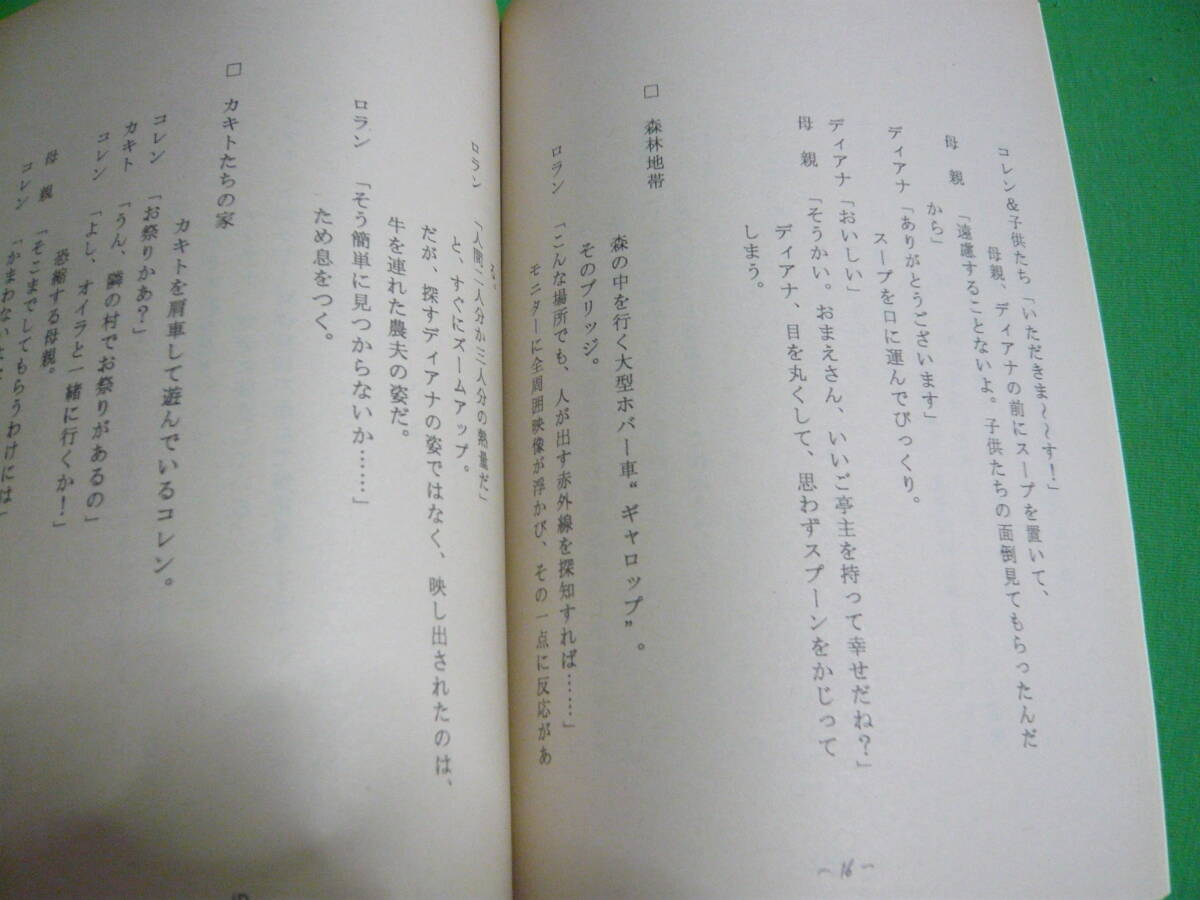 コレン＆子供たち「いただきま～～す！」
母親、ディアナの前にスープを置いて、
母　親「遠慮することないよ。子供たちの面倒見てもらったんだ
から」
ディアナ「ありがとうございます」
スープを口に運んでびっくり。
ディアナ「おいしい」
母　親「そうかい。おまえさん、いいご亭主を持って幸せだね？」
ディアナ、目を丸くして、思わずスプーンをかじって
しまう。
□　森林地帯
森の中を行く大型ホバー車“ギャロップ”。
そのブリッジ。
ロラン　「こんな場所でも、人が出す赤外線を探知すれば……」
モニターに全周囲映像が浮かび、その一点に反応があ
～16～
る。
ロラン　「人間二人分か三人分の熱量だ」
と、すぐにズームアップ。
だが、探すディアナの姿ではなく、映し出されたのは、
牛を連れた農夫の姿だ。
ロラン　「そう簡単に見つからないか……」
ため息をつく。
□　カキトたちの家
カキトを肩車して遊んでいるコレン。
コレン　「お祭りかあ？」
カキト　「うん、隣の村でお祭りがあるの」
コレン　「よし、オイラと一緒に行くか！」
恐縮する母親。
母　親　「そこまでしてもらうわけには」
コレン　「かまわないよ